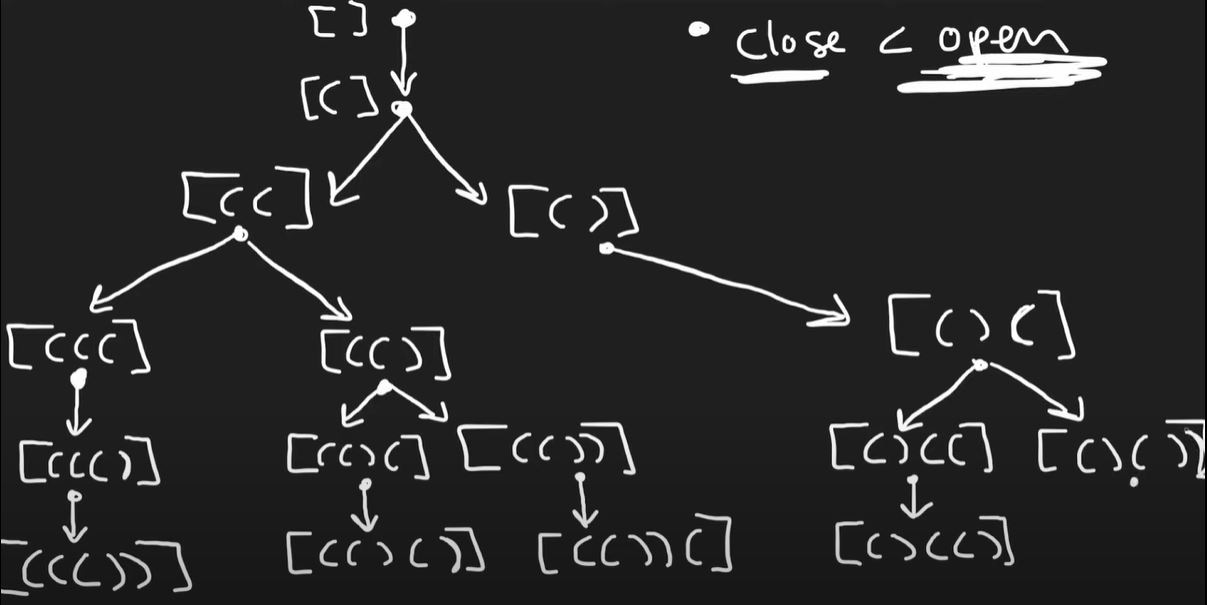 [ ]
• close < open
[(]
[((]
[()]
[(((]
[(()]
[()(]
[((()]
[(()(]
[(())]
[()((]
[()()]
[((())]
[(()()]
[(())(]
[()(()]